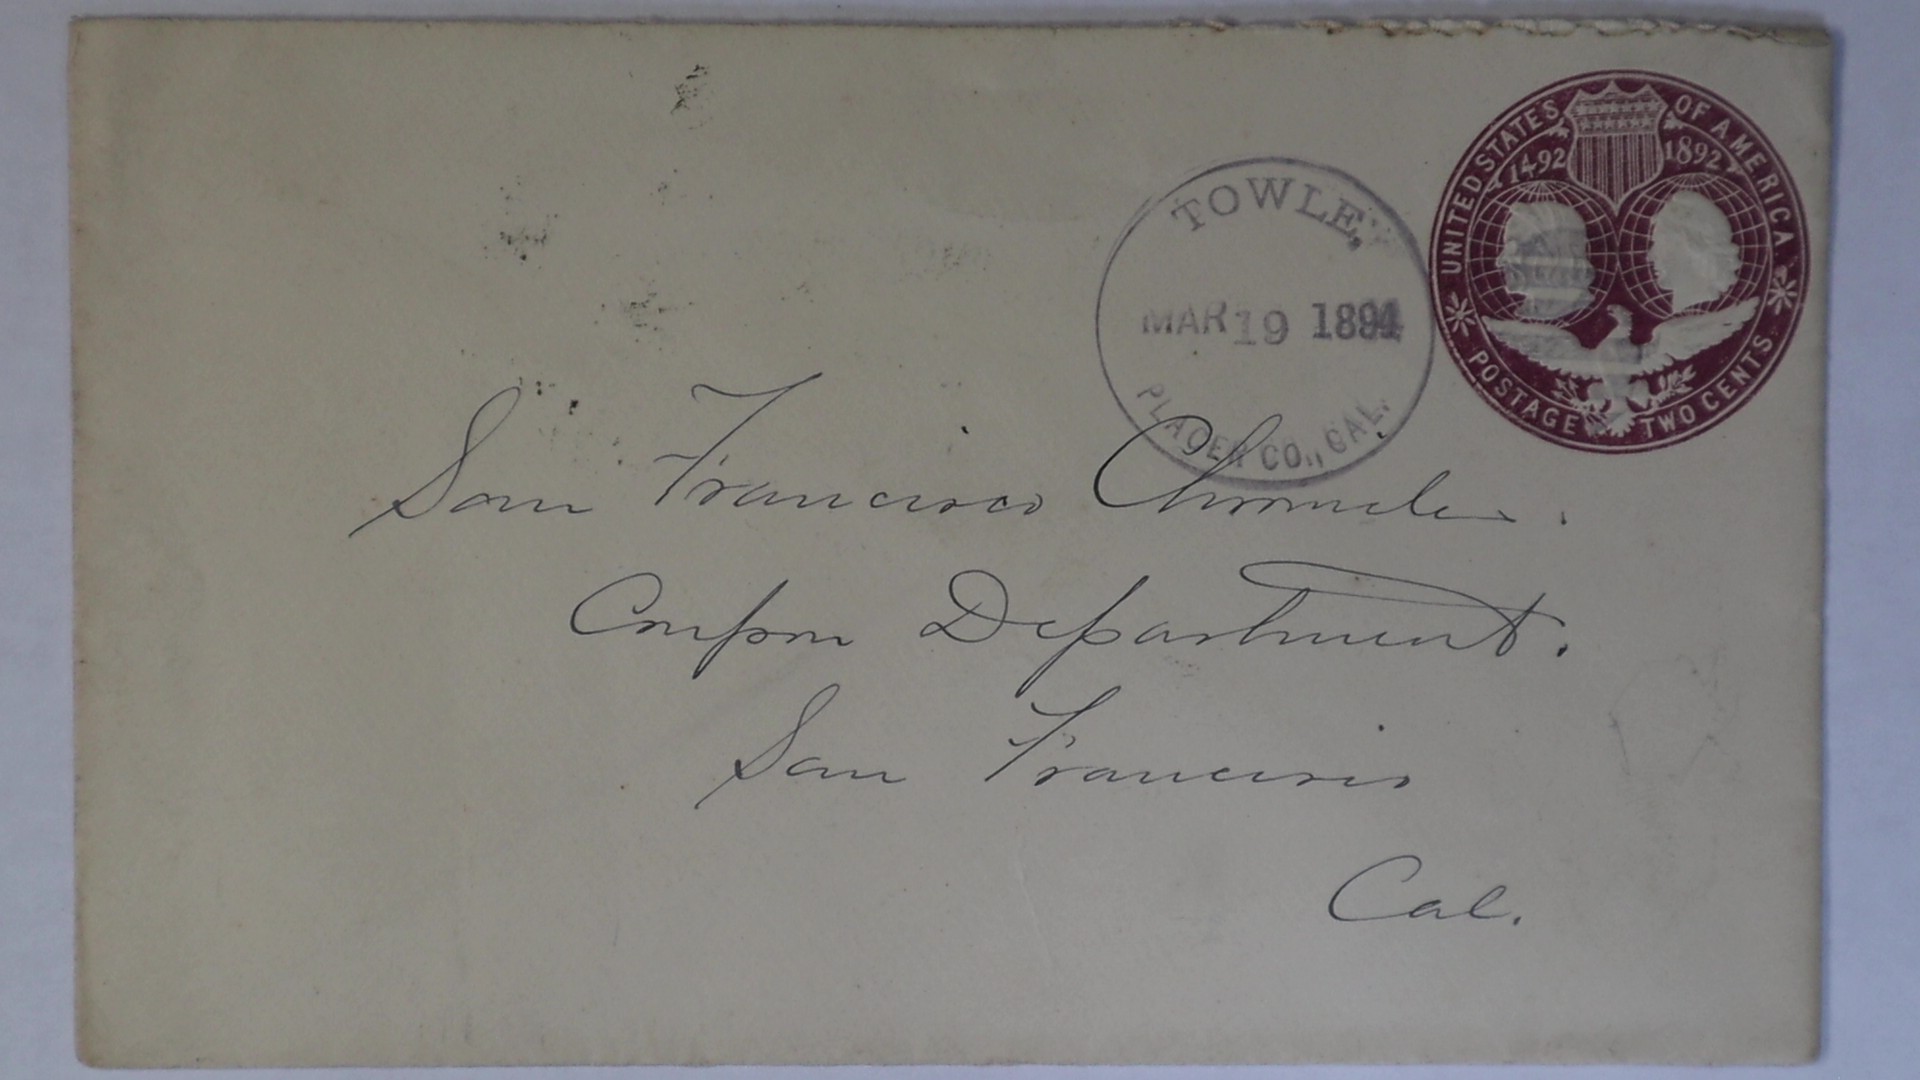 UNITED STATES OF AMERICA
1492 1892
POSTAGE TWO CENTS
TOWLE,
MAR 19 1894
PLACER CO., CAL.
San Francisco Chronicle.
Coupon Department.
San Francisco
Cal.